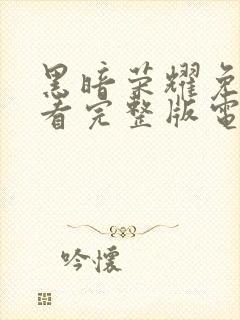 黑暗荣耀免
看完整版電
吟懷